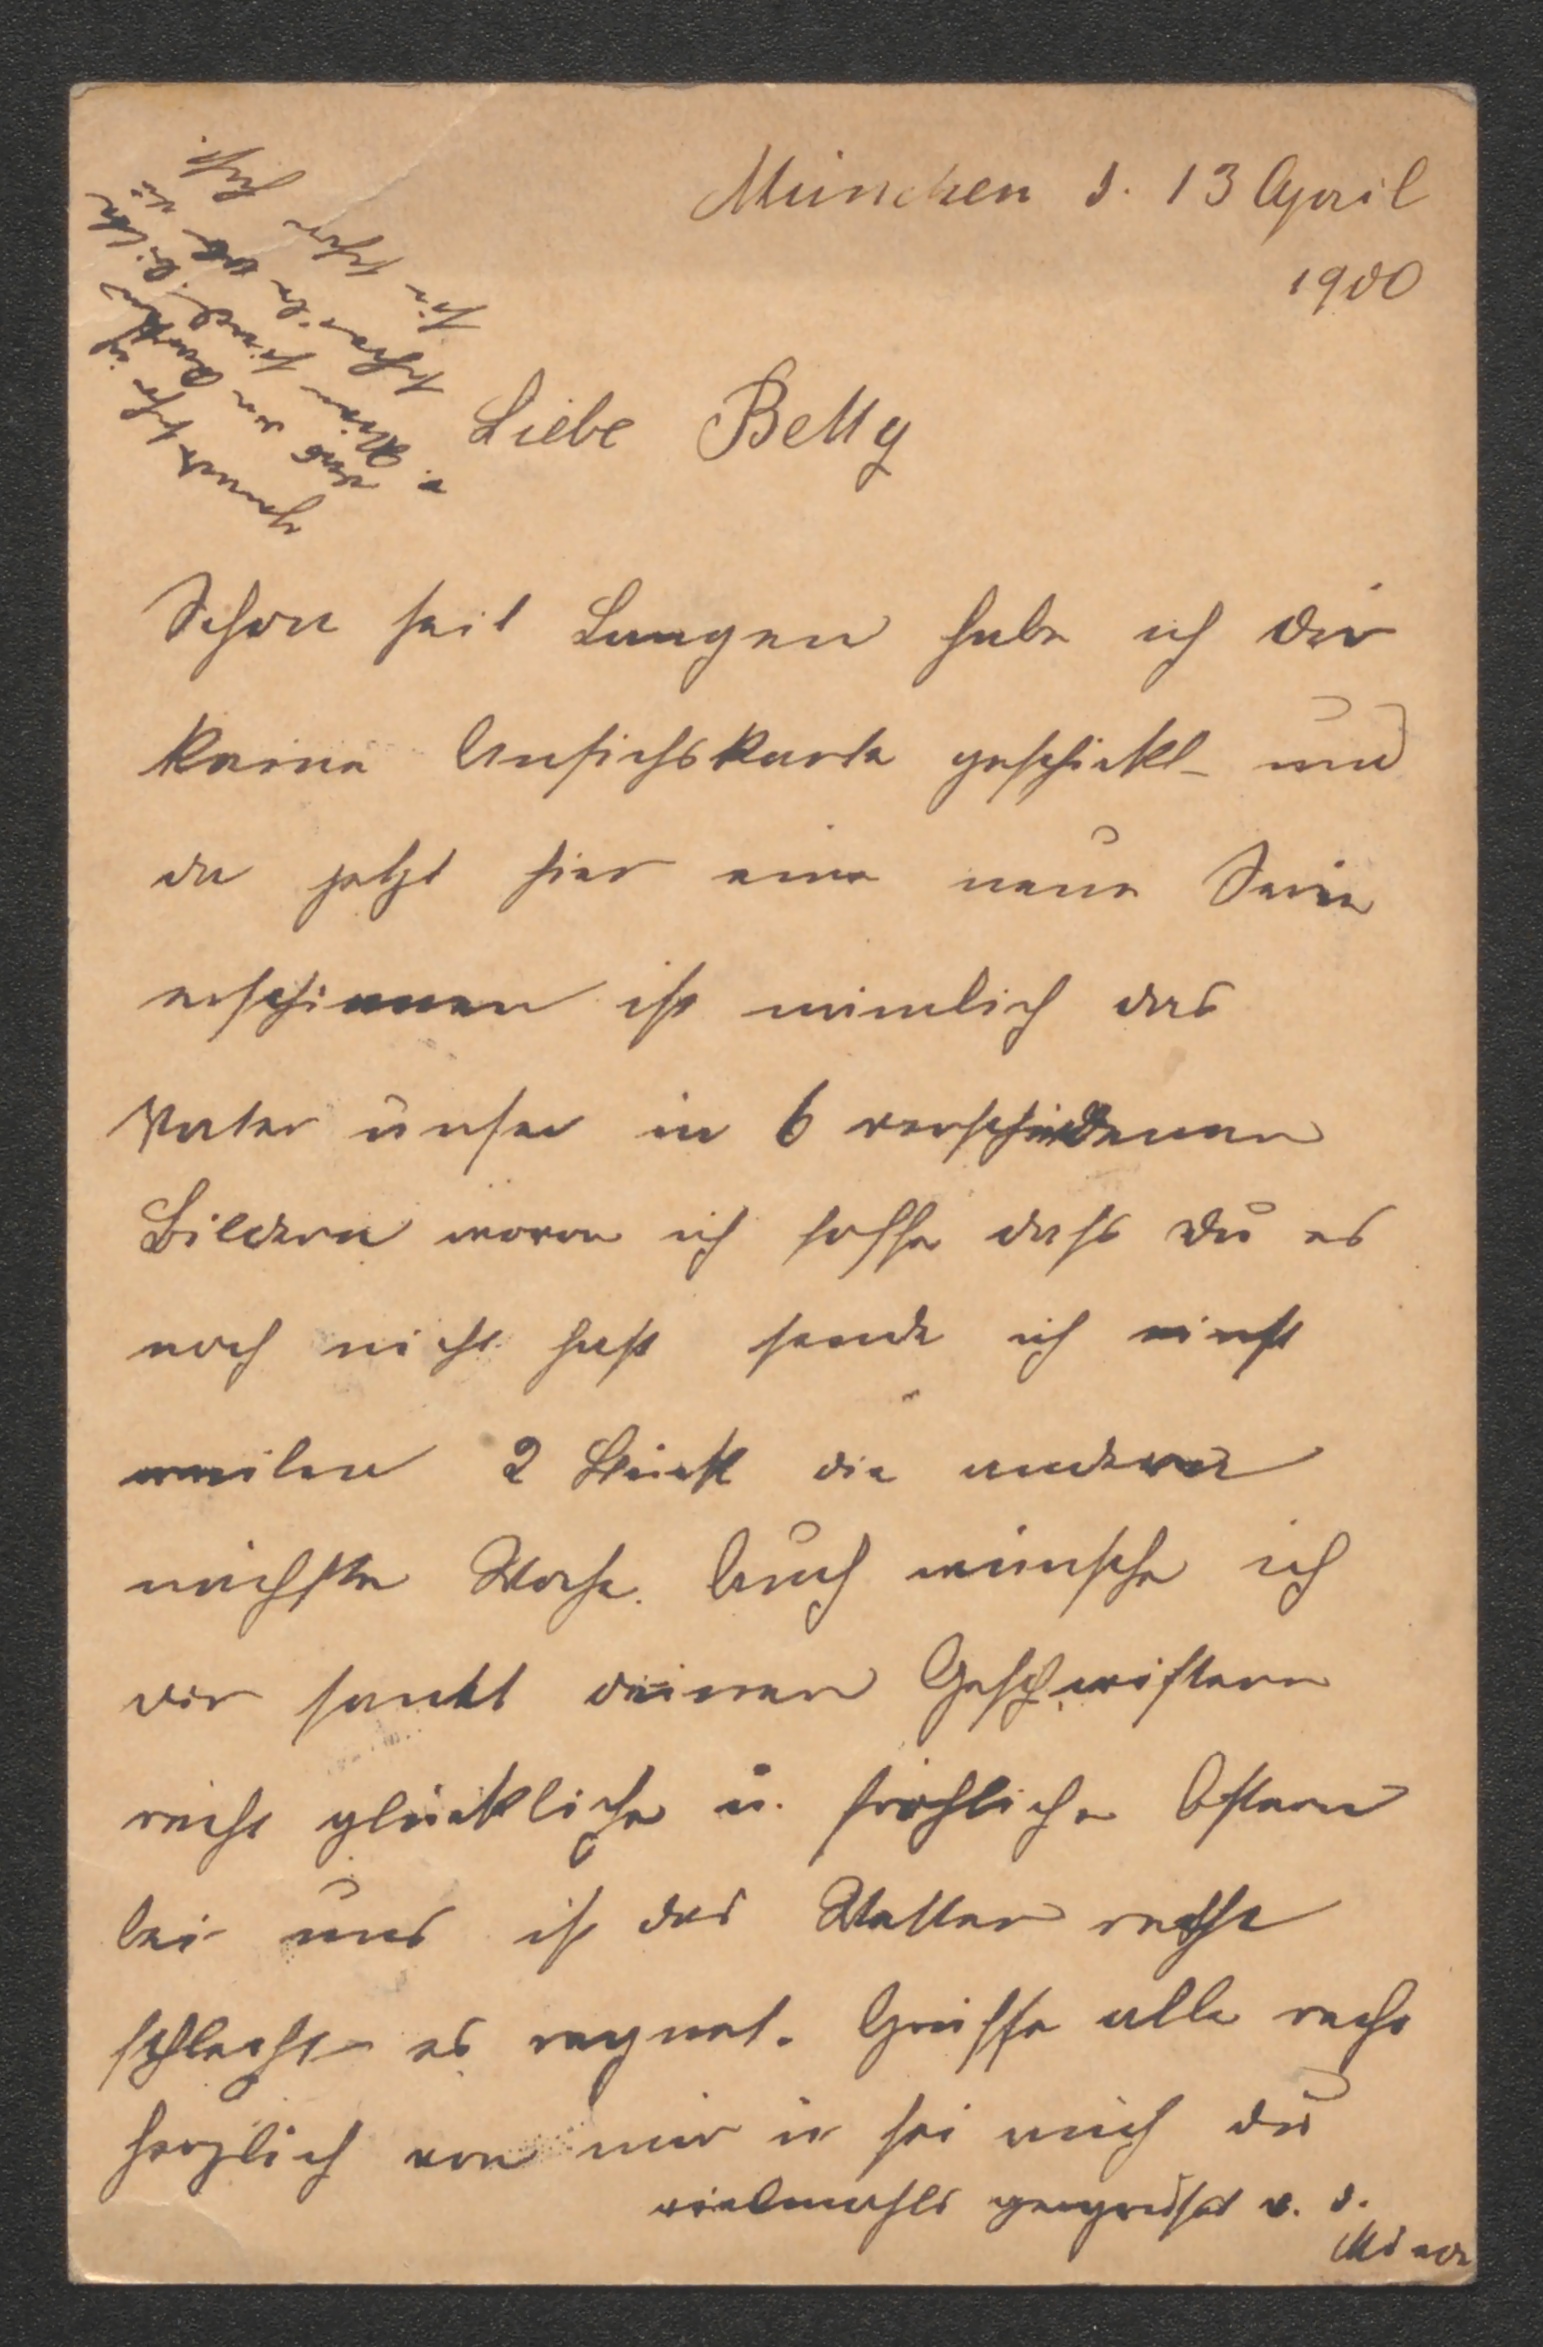 München d. 13 April
1900
Liebe Betty
Schon seit Langen habe ich dir
keine Ansichskarte geschickt und
da jetzt hier eine neue Serie
erschienen ist nämlich das
Vater unser in 6 verschiedenen
Bildern wovon ich hoffe dass du es
noch nicht hast sende ich einst
weilen 2 Stück die anderen
nächste Woche. Auch wünsche ich
dir samt deinen Geschwistern
recht glückliche u. fröhliche Ostern
bei uns ist das Wetter recht
schlecht es regnet. Grüsse alle recht
herzlich von mir u sei auch du
vielmahls gegrüsst v. d.